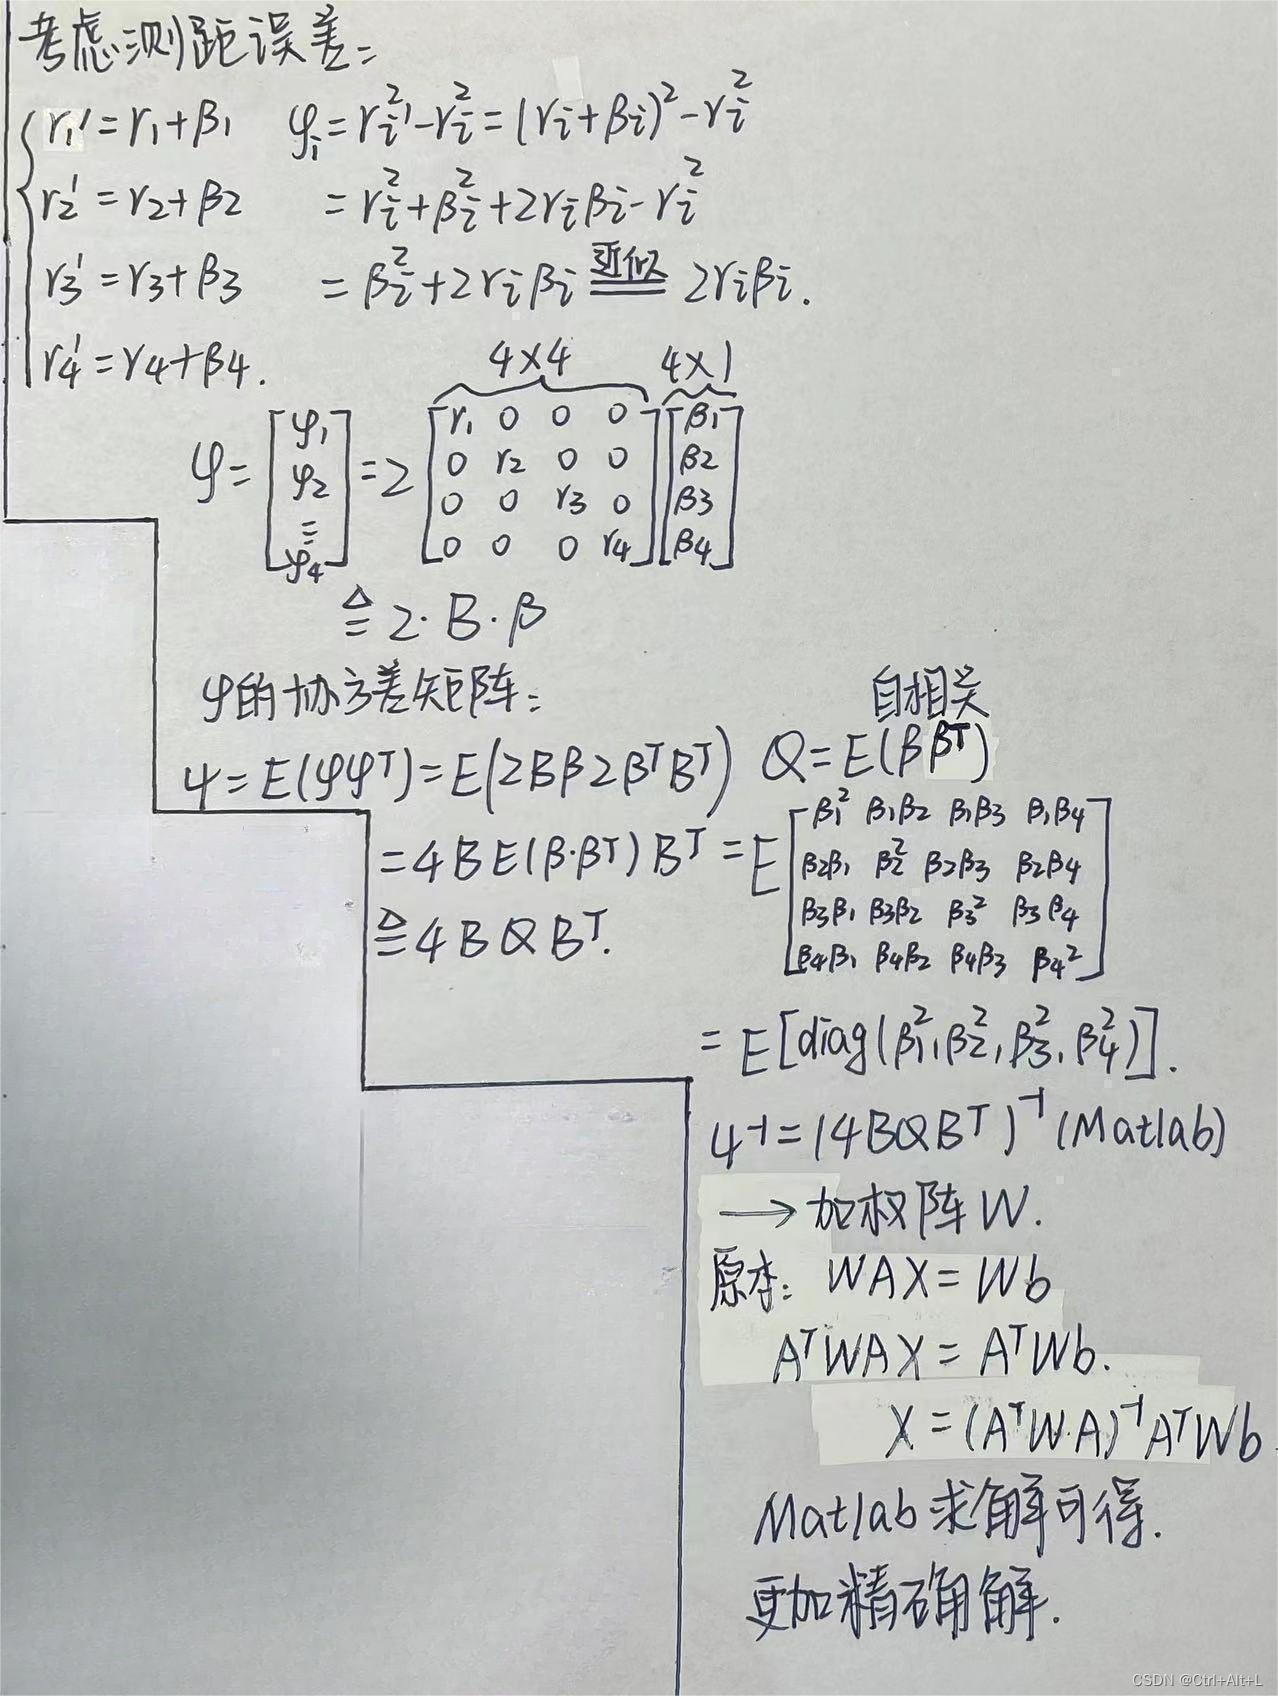 考虑测距误差:
r₁' = r₁+β₁
r₂' = r₂+β₂
r₃' = r₃+β₃
r₄' = r₄+β₄.
φᵢ = rᵢ²' - rᵢ² = (rᵢ+βᵢ)² - rᵢ²
= rᵢ²+βᵢ²+2rᵢβᵢ - rᵢ²
= βᵢ²+2rᵢβᵢ 近似 = 2rᵢβᵢ.
4×4 4×1
φ = [φ₁ φ₂ ⋮ φ₄] = 2 [r₁ 0 0 0 [β₁
0 r₂ 0 0 β₂
0 0 r₃ 0 β₃
0 0 0 r₄] β₄]
≜ 2·B·β
φ的协方差矩阵:
ψ = E(φφᵀ) = E(2Bβ2βᵀBᵀ)
= 4BE(β·βᵀ)Bᵀ
≜ 4BQBᵀ.
自相关
Q = E(ββᵀ)
= E [β₁² β₁β₂ β₁β₃ β₁β₄
β₂β₁ β₂² β₂β₃ β₂β₄
β₃β₁ β₃β₂ β₃² β₃β₄
β₄β₁ β₄β₂ β₄β₃ β₄²]
= E[diag(β₁²,β₂²,β₃²,β₄²)].
ψ⁻¹ = (4BQBᵀ)⁻¹ (Matlab)
→ 加权阵W.
原本: WAX = Wb
AᵀWAX = AᵀWb.
X = (AᵀW·A)⁻¹AᵀWb
Matlab求解可得.
更加精确解.
CSDN @Ctrl+Alt+L